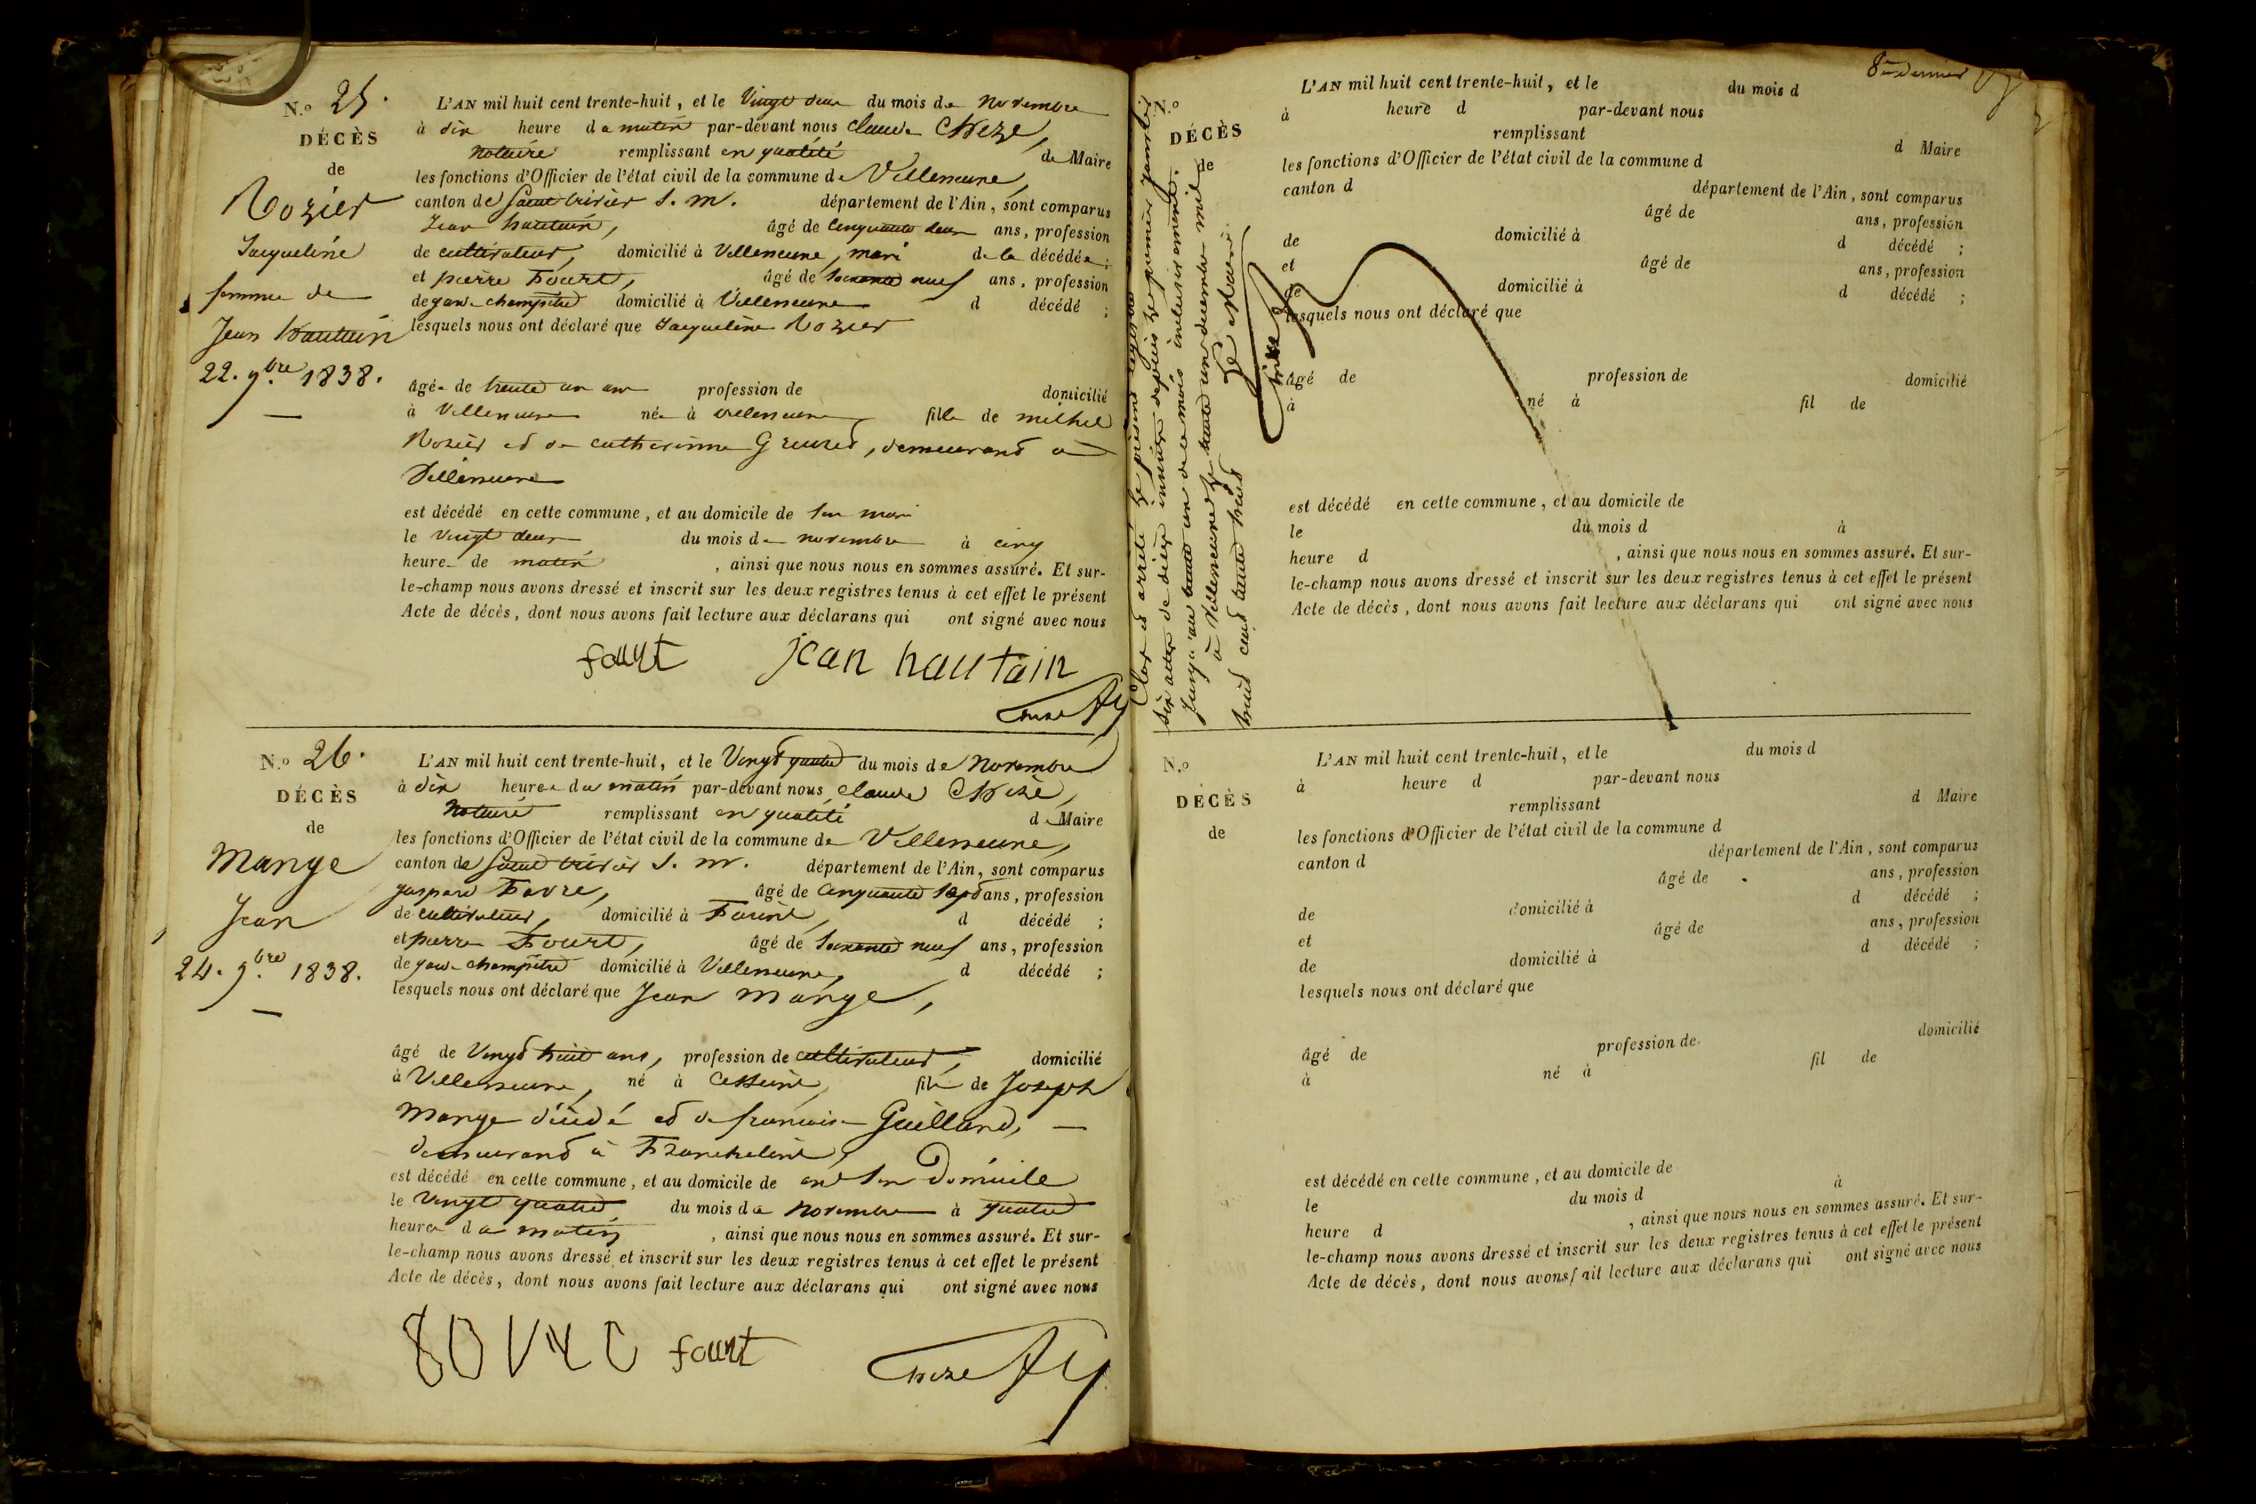 N.º 25.
DÉCÈS
de
Rozier
Jacqueline
femme de
Jean hautain
22. 9.bre 1838.
L'AN mil huit cent trente-huit, et le Vingt deux du mois de novembre
à dix heure du matin par-devant nous claude Chize,
notaire remplissant en qualité de Maire
les fonctions d'Officier de l'état civil de la commune de Villeneuve,
canton de Saint trivier S. m. département de l'Ain, sont comparus
Jean hautain, âgé de cinquante deux ans, profession
de cultivateur, domicilié à Villeneuve, mari de la décédée;
et pierre Fourt, âgé de soixante neuf ans, profession
de garde champêtre domicilié à Villeneuve d décédé ;
lesquels nous ont déclaré que Jacqueline Rozier
âgée de trente un ans profession de domicilié
à Villeneuve née à villeneuve fille de michel
Rozier et de catherinne Greuzet, demeurant à
Villeneuve
est décédé en cette commune, et au domicile de son mari
le vingt deux du mois de novembre à cinq
heure de matin , ainsi que nous nous en sommes assuré. Et sur-
le-champ nous avons dressé et inscrit sur les deux registres tenus à cet effet le présent
Acte de décès, dont nous avons fait lecture aux déclarans qui ont signé avec nous
fourt jean hautain
Chize
N.º 26.
DÉCÈS
de
Mange
Jean
24. 9.bre 1838.
L'AN mil huit cent trente-huit, et le Vingt quatre du mois de novembre
à dix heures du matin par-devant nous claude Chize,
notaire remplissant en qualité de Maire
les fonctions d'Officier de l'état civil de la commune de Villeneuve,
canton de Saint trivier S. m. département de l'Ain, sont comparus
gaspard Favre, âgé de cinquante sept ans, profession
de cultivateur, domicilié à d décédé ;
et pierre Fourt, âgé de soixante neuf ans, profession
de garde champêtre domicilié à Villeneuve, d décédé ;
lesquels nous ont déclaré que Jean mange,
âgé de Vingt huit ans, profession de cultivateur, domicilié
à Villeneuve, né à fils de Joseph
mange décédé et de francoise Guilland,
demeurant à Francheleins,
est décédé en cette commune, et au domicile de en son Domicile
le Vingt quatre du mois de novembre à quatre
heures du matin , ainsi que nous nous en sommes assuré. Et sur-
le-champ nous avons dressé et inscrit sur les deux registres tenus à cet effet le présent
Acte de décès, dont nous avons fait lecture aux déclarans qui ont signé avec nous
fourt Chize
Clos et arrêté le présent registre
dix actes de décès depuis le premier janvier
jusqu'au trente un de ce mois inclusivement.
à Villeneuve le trente un decembre mil
huit cent trente huit
Le Maire
Chize
8e et dernier
N.º
DÉCÈS
de
L'AN mil huit cent trente-huit, et le du mois d
à heure d par-devant nous
remplissant d Maire
les fonctions d'Officier de l'état civil de la commune d
canton d département de l'Ain, sont comparus
âgé de ans, profession
de domicilié à d décédé ;
et âgé de ans, profession
de domicilié à d décédé ;
lesquels nous ont déclaré que
âgé de profession de domicilié
à né à fil de
est décédé en cette commune, et au domicile de
le du mois d à
heure d , ainsi que nous nous en sommes assuré. Et sur-
le-champ nous avons dressé et inscrit sur les deux registres tenus à cet effet le présent
Acte de décès, dont nous avons fait lecture aux déclarans qui ont signé avec nous
N.º
DÉCÈS
de
L'AN mil huit cent trente-huit, et le du mois d
à heure d par-devant nous
remplissant d Maire
les fonctions d'Officier de l'état civil de la commune d
canton d département de l'Ain, sont comparus
âgé de ans, profession
de domicilié à d décédé ;
et âgé de ans, profession
de domicilié à d décédé ;
lesquels nous ont déclaré que
âgé de profession de domicilié
à né à fil de
est décédé en cette commune, et au domicile de
le du mois d à
heure d , ainsi que nous nous en sommes assuré. Et sur-
le-champ nous avons dressé et inscrit sur les deux registres tenus à cet effet le présent
Acte de décès, dont nous avons fait lecture aux déclarans qui ont signé avec nous